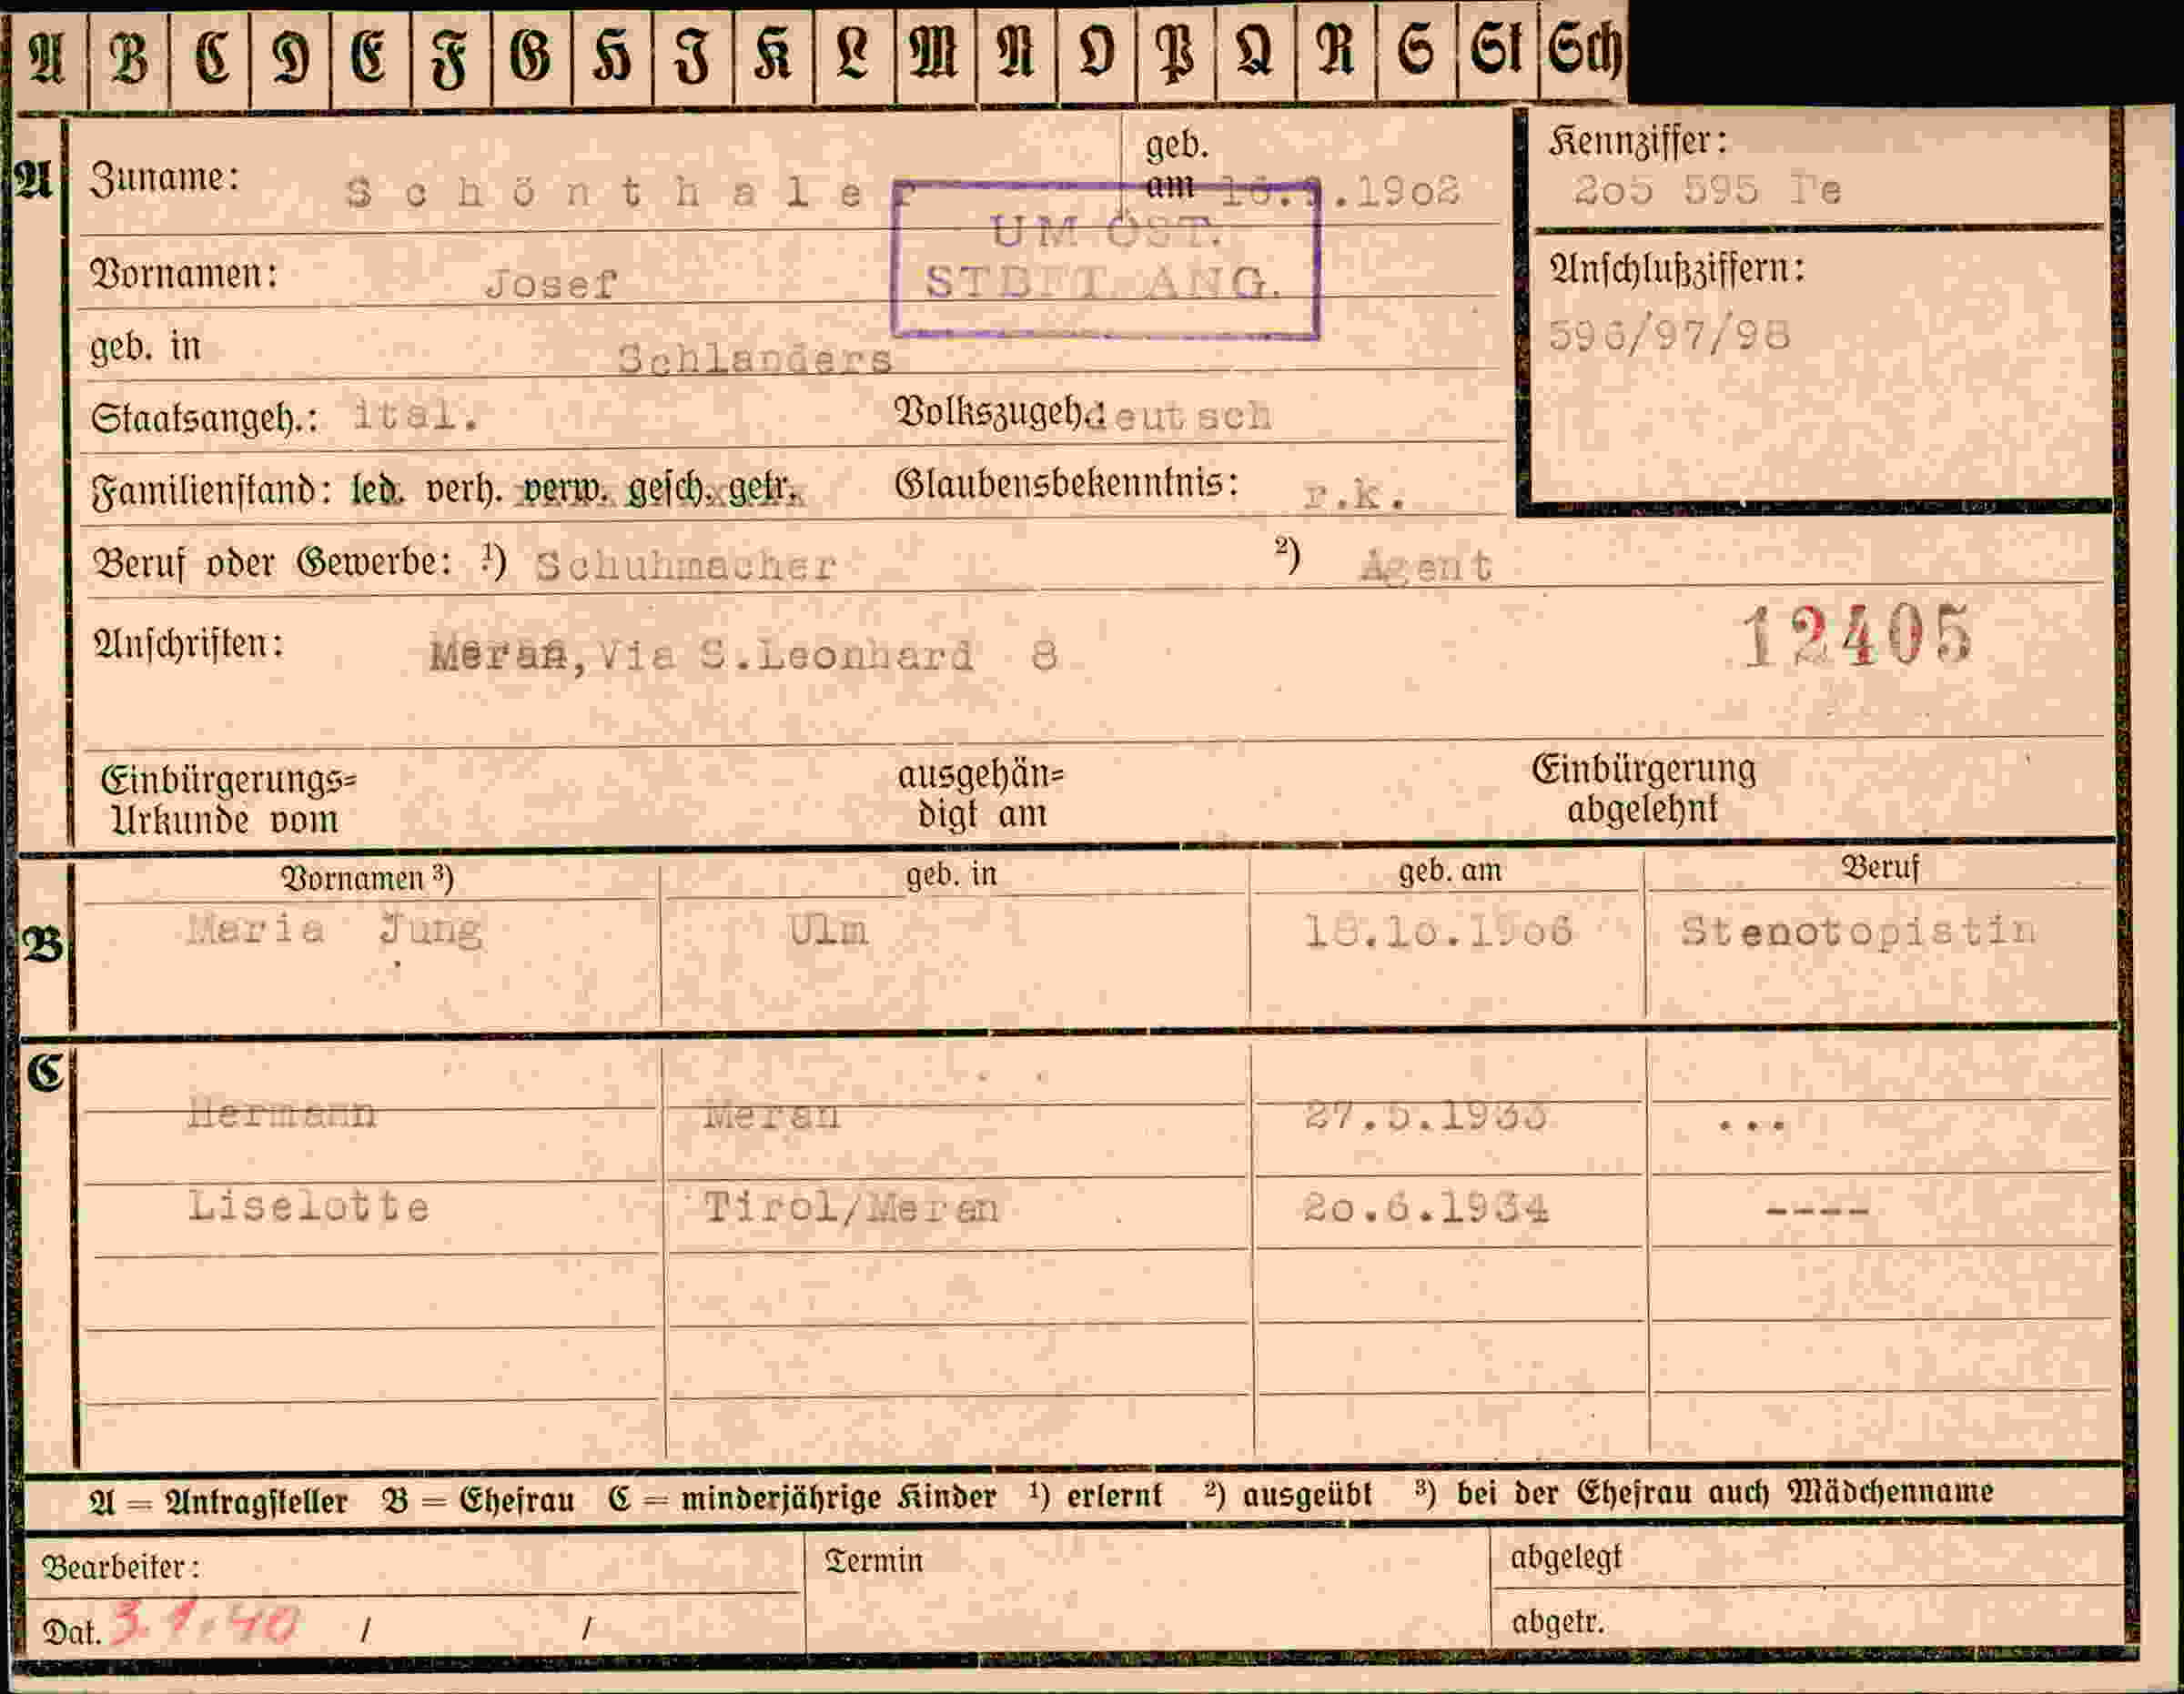 A B C D E F G H I K L M N O P Q R S St Sch
A Zuname: Schönthaler geb. am .1902 Kennziffer: 205 595 Te
UM ÖST.
STBFT. ANG.
Vornamen: Josef Anschlußziffern:
geb. in Schlanders 596/97/98
Staatsangeh.: ital. Volkszugeh. deutsch
Familienstand: led. verh. verw. gesch. getr. Glaubensbekenntnis: r.k.
Beruf oder Gewerbe: ¹) Schuhmacher ²) Agent
Anschriften: Meran, Via S.Leonhard 8 12405
Einbürgerungs= ausgehän= Einbürgerung
Urkunde vom digt am abgelehnt
Vornamen ³) geb. in geb. am Beruf
B Maria Jung Ulm 18.10.1906 Stenotopistin
C
Hermann Meran 27.5.1933 ...
Liselotte Tirol/Meran 20.6.1934 ----
A = Antragsteller B = Ehefrau C = minderjährige Kinder ¹) erlernt ²) ausgeübt ³) bei der Ehefrau auch Mädchenname
Bearbeiter: Termin abgelegt
Dat. 3.1.40 / / abgetr.